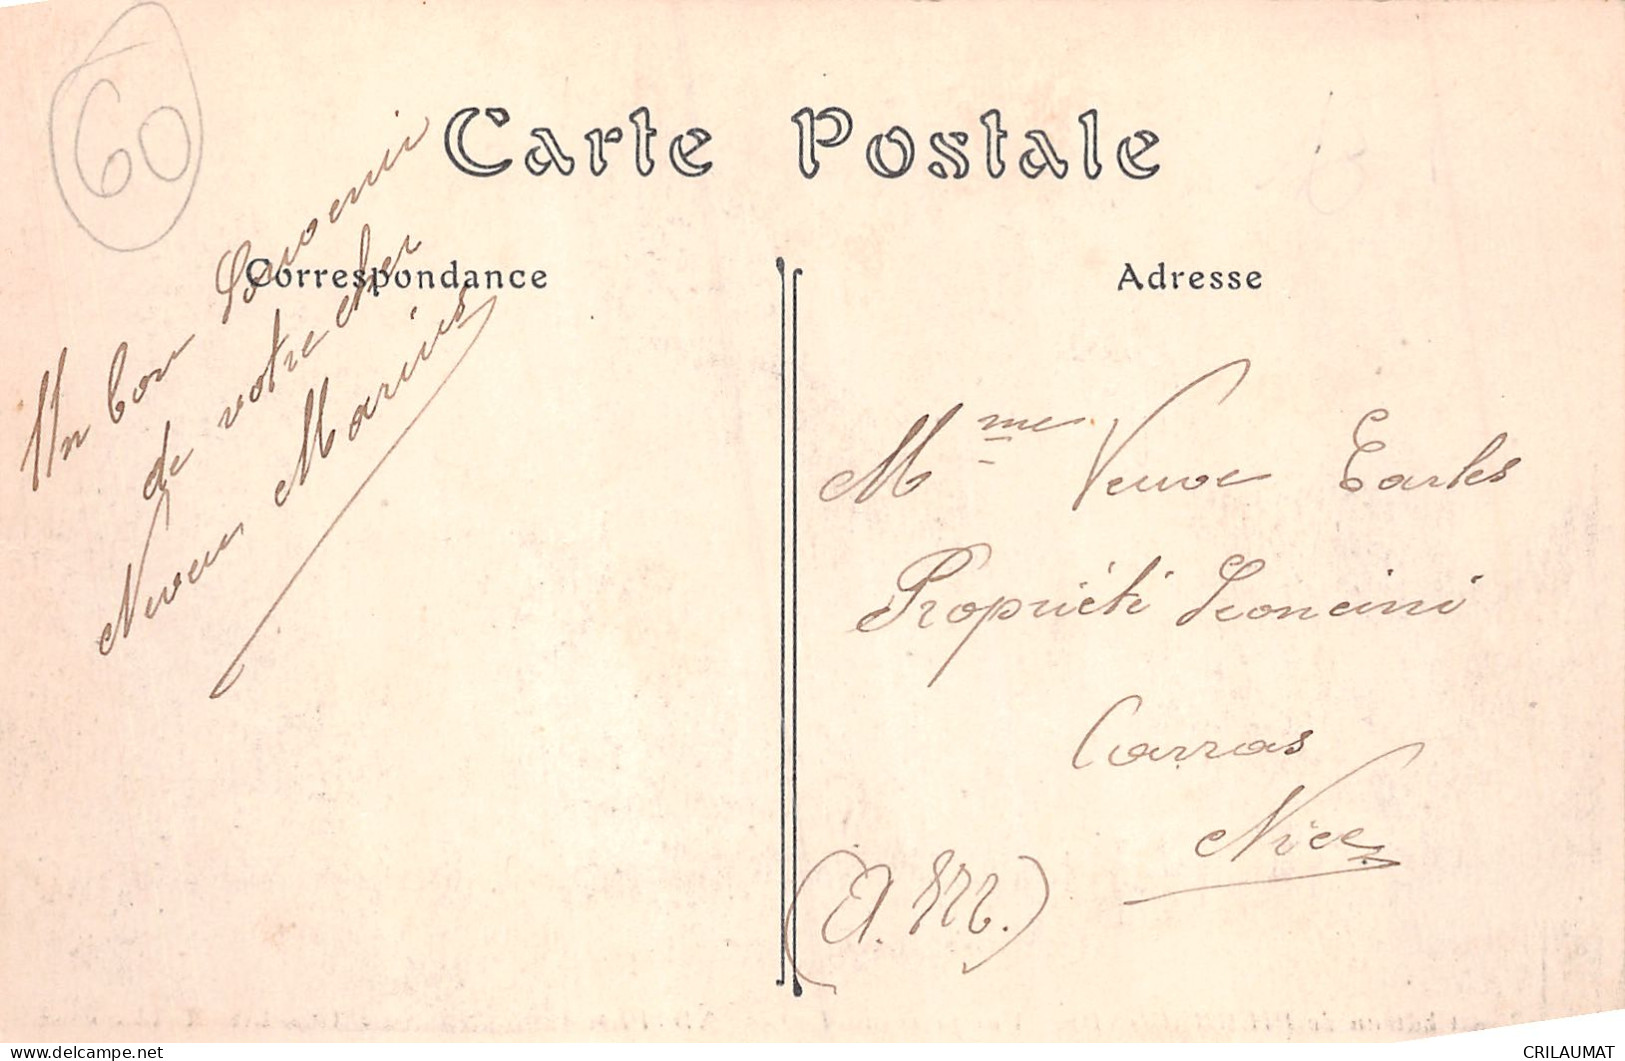 60
Carte Postale
Correspondance
Adresse
Un bon Souvenir
de votre cher
Neveu Marius
Mme Veuve Tarles
Propriété Leoncini
Carras
Nice
(A. M.)
CRILAUMAT